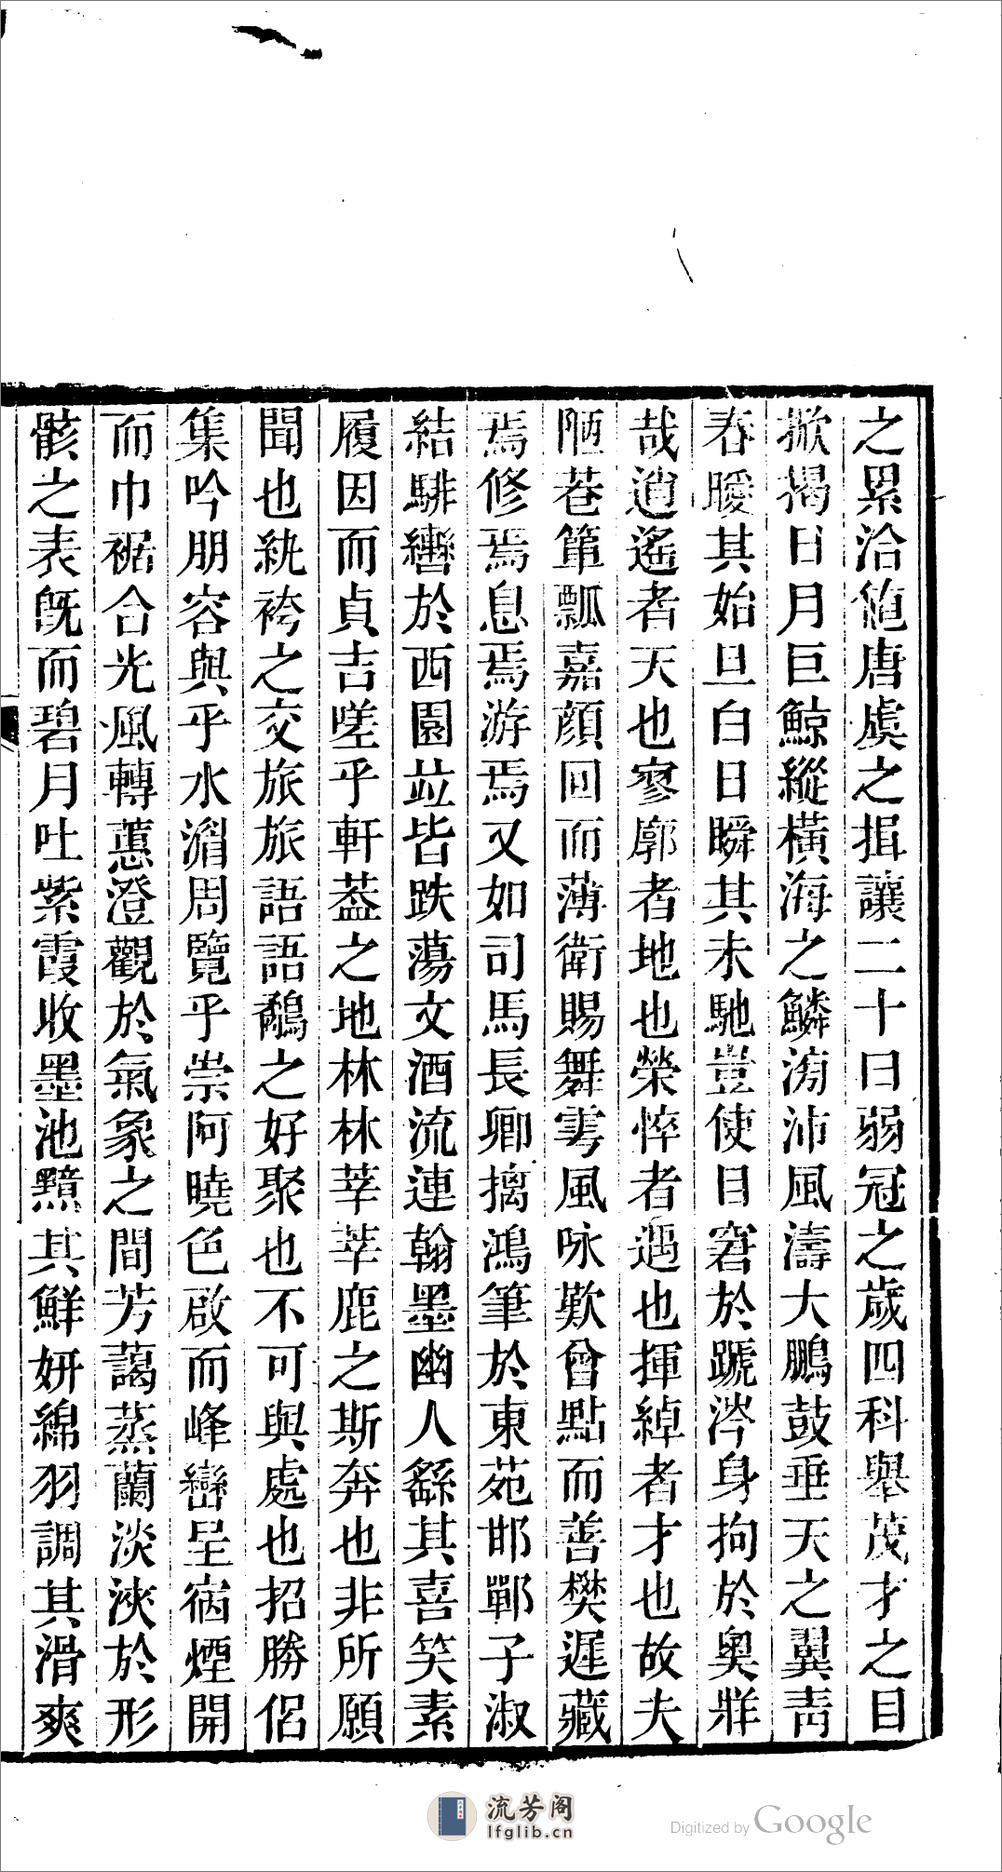 之累洽飽唐虞之揖讓二十曰弱冠之歲四科舉茂才之目
掀揭日月巨鯨縱橫海之鱗滂沛風濤大鵬鼓垂天之翼青
春暖其始旦白日瞬其未馳豈使目窘於蹏涔身拘於奧牂
哉逍遙者天也寥廓者地也榮悴者遇也揮綽者才也故夫
陋巷簞瓢嘉顏回而薄衛賜舞雩風咏歎曾點而善樊遲藏
焉修焉息焉游焉又如司馬長卿摛鴻筆於東苑邯鄲子淑
結騑轡於西園竝皆跌蕩文酒流連翰墨幽人繇其喜笑素
履因而貞吉嗟乎軒葢之地林林莘莘鹿之斯奔也非所願
聞也紈袴之交旅旅語語鷸之好聚也不可與處也招勝侶
集吟朋容與乎水湄周覽乎崇阿曉色啟而峰巒呈宿煙開
而巾裾合光風轉蕙澄觀於氣象之間芳藹蒸蘭淡浹於形
骸之表旣而碧月吐紫霞收墨池黰其鮮妍綿羽調其滑爽
流芳阁
lfglib.cn
Digitized by Google